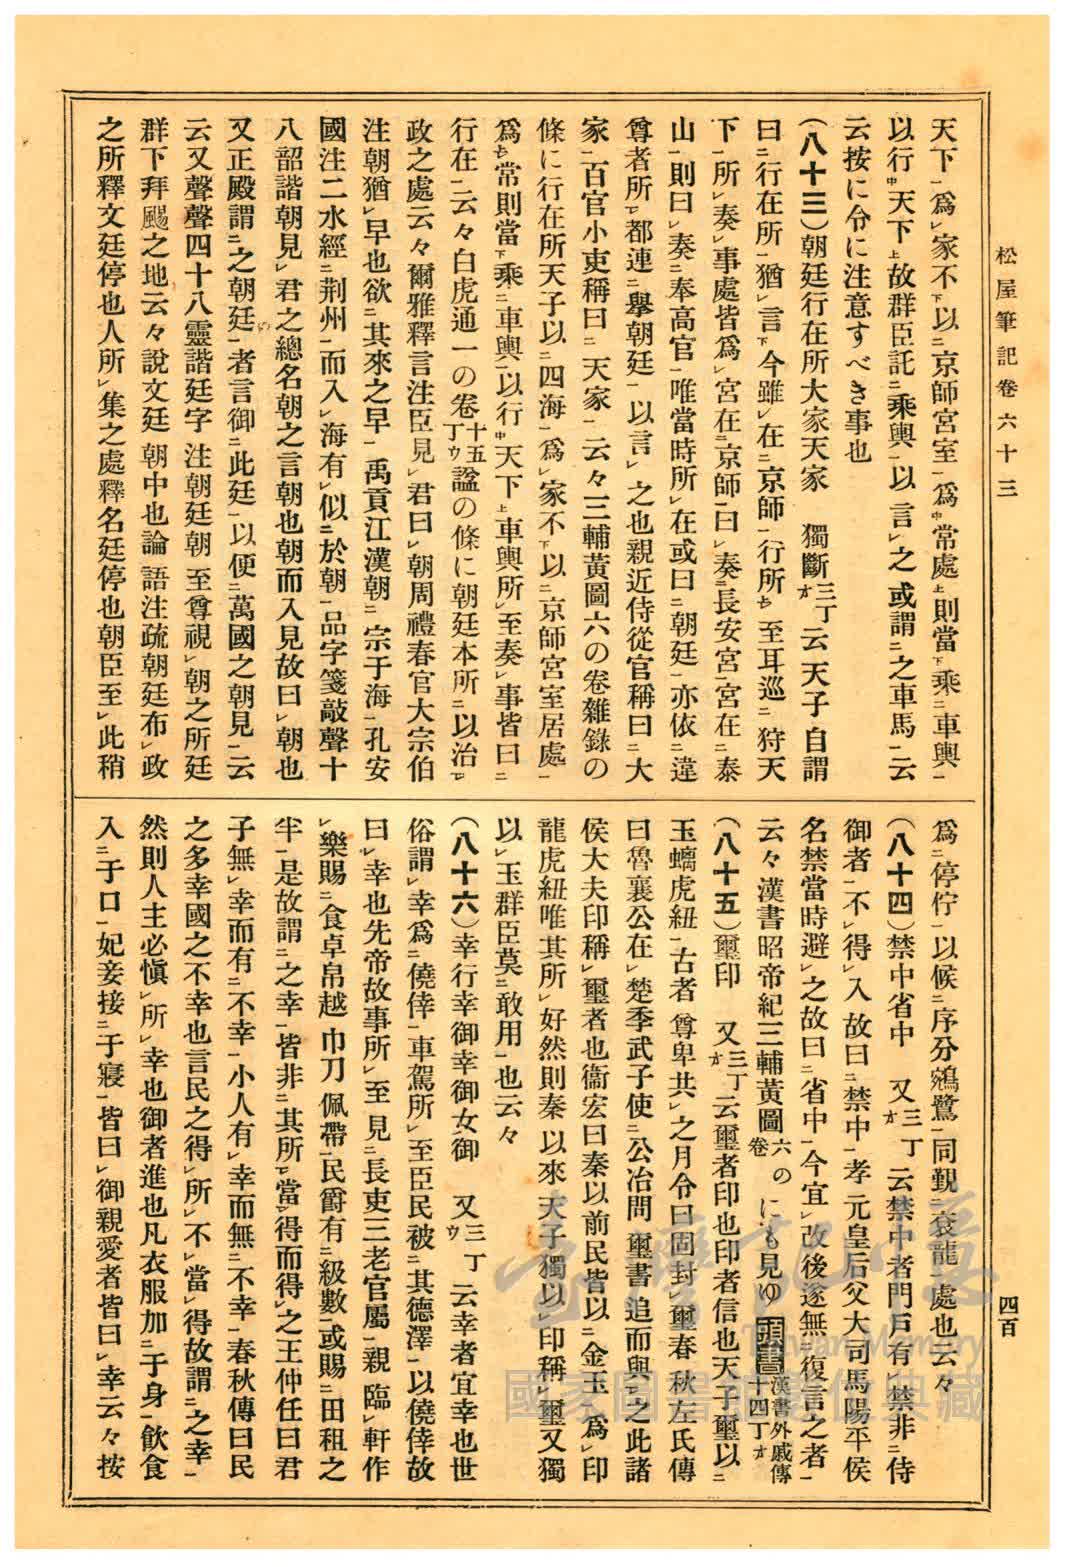 松屋筆記卷六十三
四百
天下一爲レ家不下以二京師宮室一爲中常處上則當下乘二車輿一
以行中天下上故群臣託二乘輿一以言レ之或謂二之車馬一云
云按に令に注意すべき事也
(八十三)朝廷行在所大家天家 獨斷三丁オ云天子自謂
曰二行在所一猶レ言下今雖レ在二京師一行所上至耳巡二狩天
下一所レ奏レ事處皆爲レ宮在二京師一曰二奏長安宮一宮在二泰
山一則曰レ奏二奉高宮一唯當時所レ在或曰二朝廷一亦依二違
尊者所レ都連二擧朝廷一以言レ之也親近侍從官稱曰二大
家一百官小吏稱曰二天家一云々三輔黃圖六の卷雜錄の
條に行在所天子以二四海一爲レ家不下以二京師宮室居處一
爲上常則當下乘二車輿一以行中天下上車輿所レ至奏レ事皆曰二
行在一云々白虎通一の卷十五丁ウ諡の條に朝廷本所二以治一レ
政之處云々爾雅釋言注臣見レ君曰レ朝周禮春官大宗伯
注朝猶レ早也欲二其來之早一禹貢江漢朝二宗于海一孔安
國注二水經二荆州一而入レ海有レ似二於朝一品字箋敲聲十
八韶諧朝見レ君之總名朝之言朝也朝而入見故曰レ朝也
又正殿謂二之朝廷一者言御二此廷一以便二萬國之朝見一云
云又聲聲四十八靈諧廷字注朝廷朝至尊視レ朝之所廷
群下拜颺之地云々說文廷朝中也論語注疏朝廷布レ政
之所釋文廷停也人所レ集之處釋名廷停也朝臣至レ此稍
爲二停佇一以候二序分鵷鷺一同覲二袞龍一處也云々
(八十四)禁中省中 又三丁オ云禁中者門戶有レ禁非二侍
御者一不レ得レ入故曰二禁中一孝元皇后父大司馬陽平侯
名禁當時避レ之故曰二省中一今宜レ改後遂無二復言之者一
云々漢書昭帝紀三輔黃圖六の卷にも見ゆ頭書漢書外戚傳十四丁オ
(八十五)璽印 又三丁オ云璽者印也印者信也天子璽以二
玉螭虎紐一古者尊卑共レ之月令曰固封レ璽春秋左氏傳
曰魯襄公在レ楚季武子使二公冶問一璽書追而與レ之此諸
侯大夫印稱レ璽者也衞宏曰秦以前民皆以二金玉一爲レ印
龍虎紐唯其所レ好然則秦以來天子獨以レ印稱レ璽又獨
以レ玉群臣莫二敢用一也云々
(八十六)幸行幸御幸御女御 又三丁ウ云幸者宜幸也世
俗謂レ幸爲二僥倖一車駕所レ至臣民被二其德澤一以僥倖故
曰レ幸也先帝故事所レ至見二長吏三老官屬一親臨レ軒作
レ樂賜二食卓帛越巾刀佩帶一民爵有二級數一或賜二田租之
半一是故謂二之幸一皆非二其所一レ當レ得而得レ之王仲任曰君
子無レ幸而有二不幸一小人有レ幸而無二不幸一春秋傳曰民
之多幸國之不幸也言民之得レ所レ不レ當レ得故謂二之幸一
然則人主必愼レ所レ幸也御者進也凡衣服加二于身一飮食
入二于口一妃妾接二于寢一皆曰レ御親愛者皆曰レ幸云々按